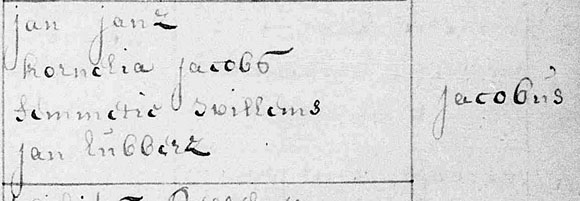 jan janz
kornelia jacobs
jemmetie willems
jan lúbberz
jacobús